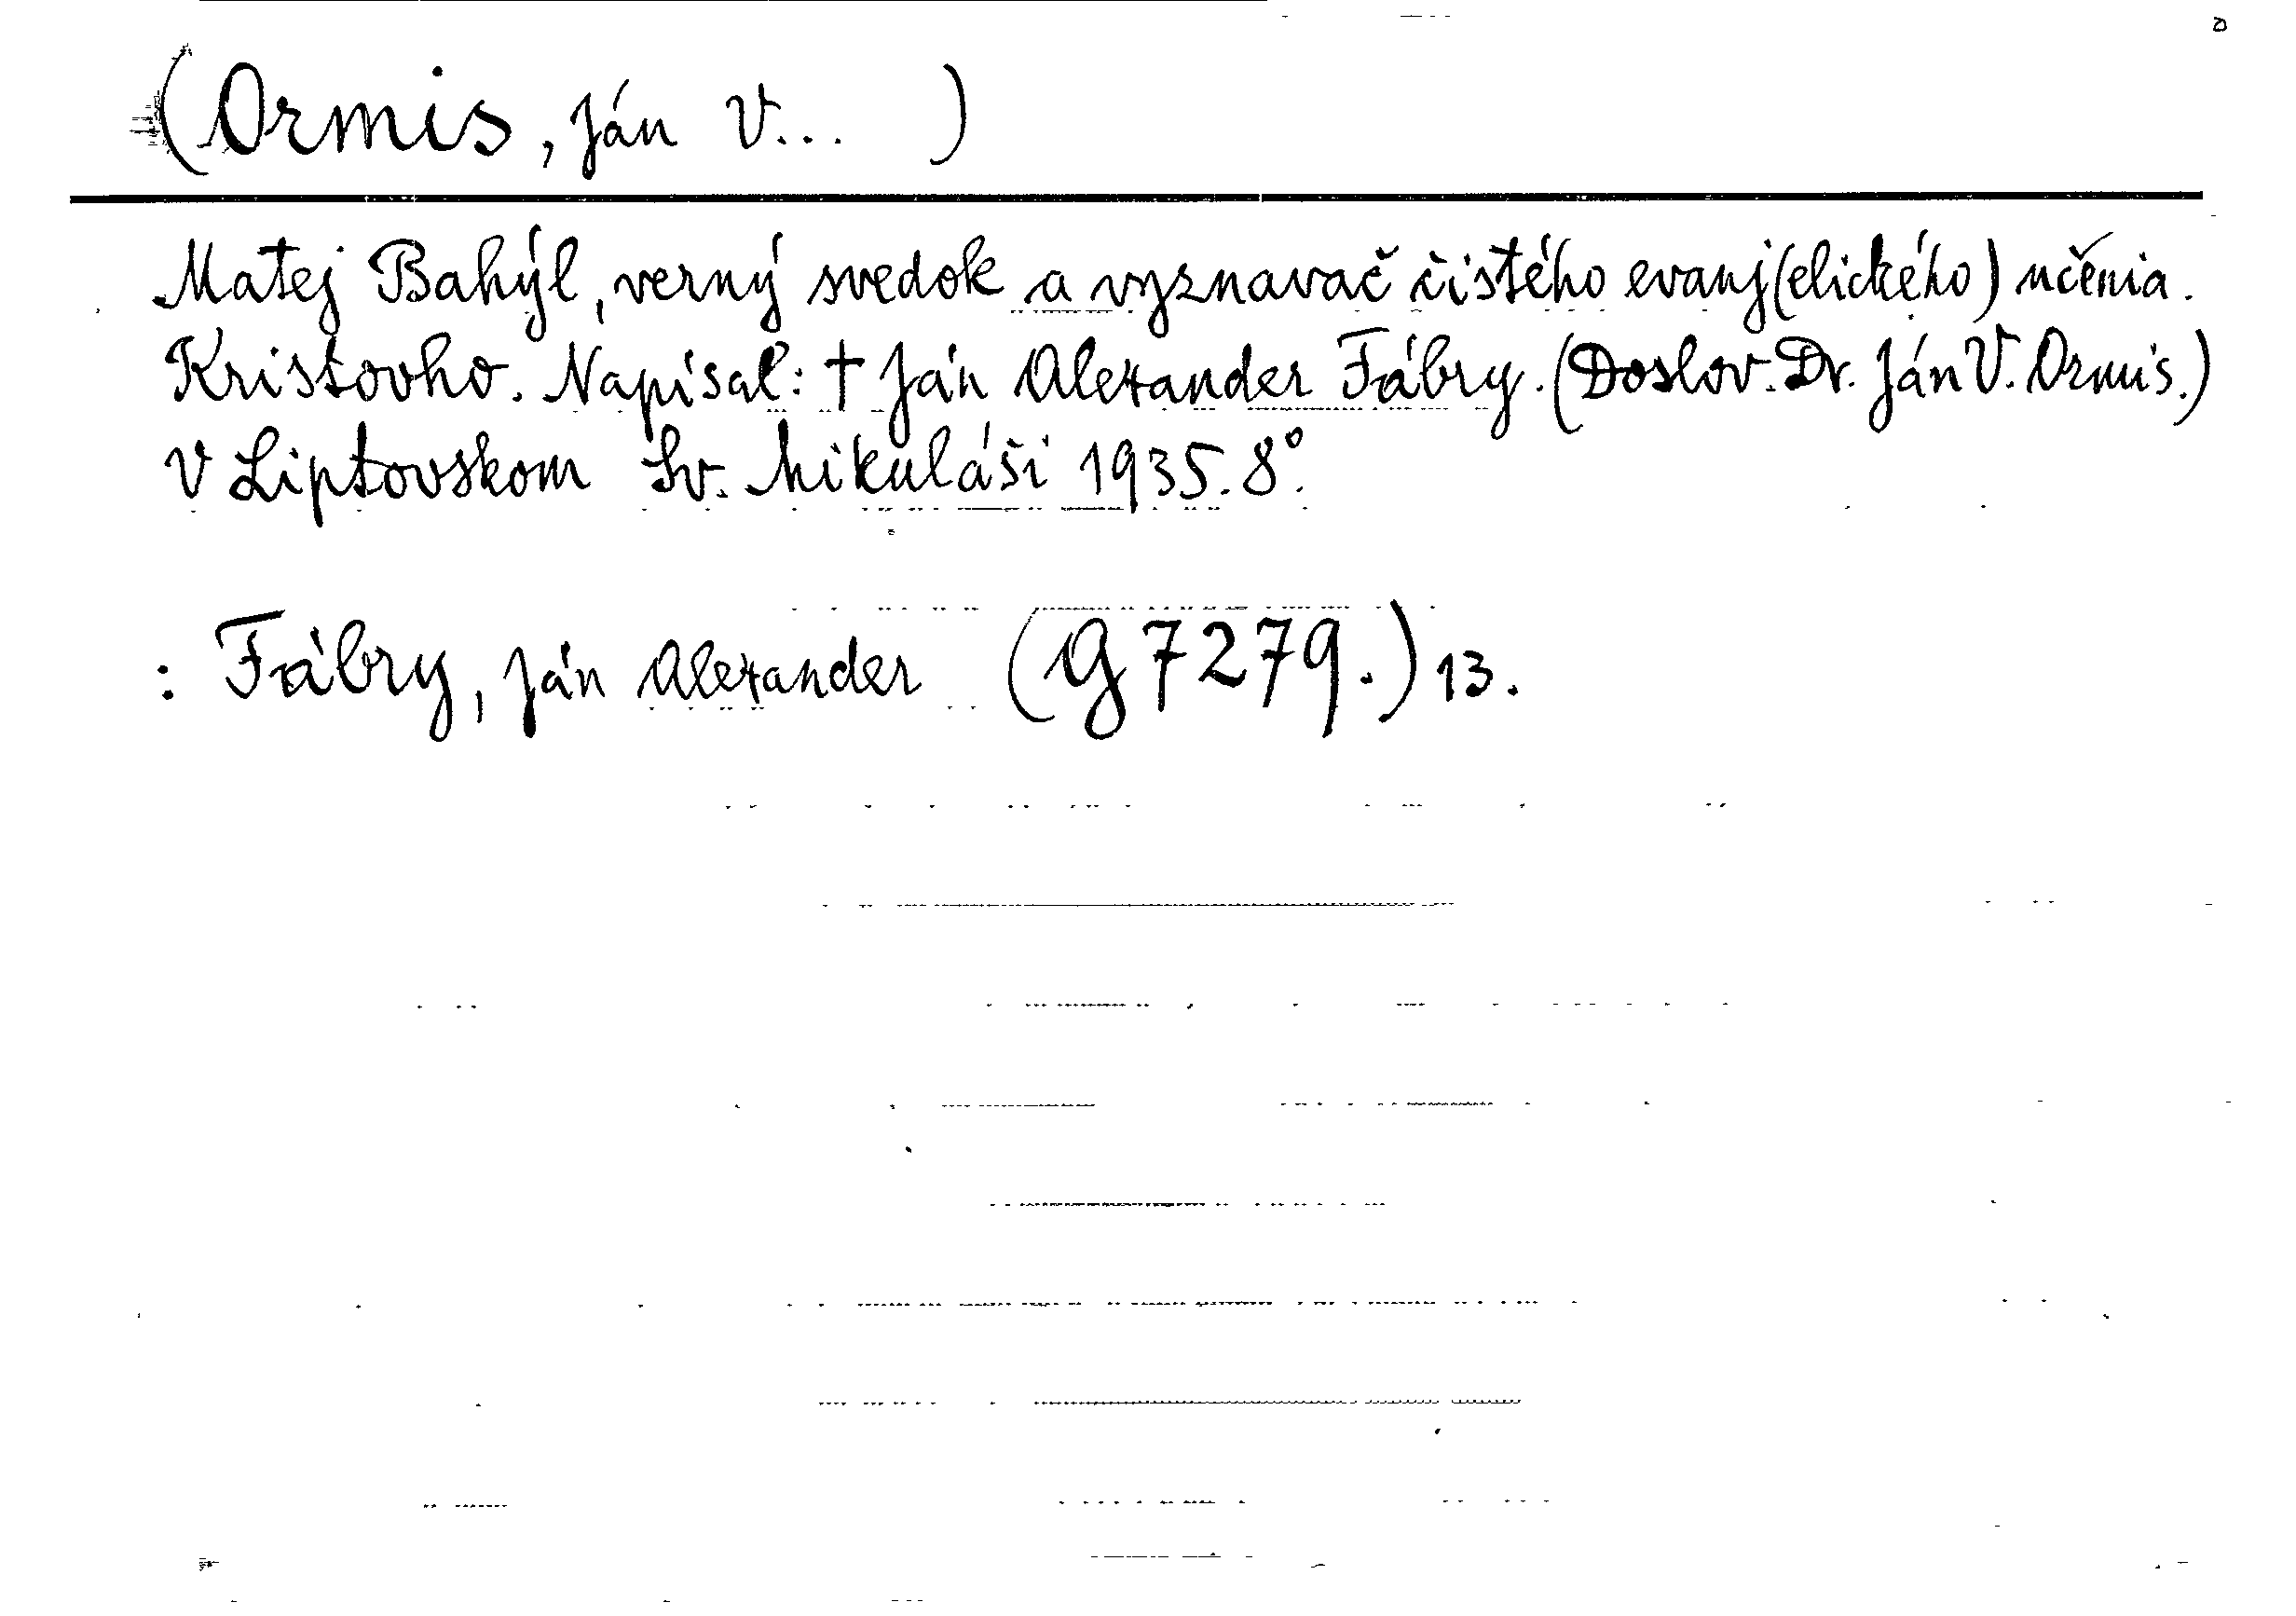 (Ormis, Ján V... )
Matej Bahýl, verný svedok a vyznavač čistého evanj(elického) učenia
Kristovho. Napísal: † Ján Alexander Fábry. (Doslov. Dr. Ján V. Ormis.)
V Liptovskom Sv. Mikuláši 1935. 8°.
: Fábry, Ján Alexander (G 7279.) 13.